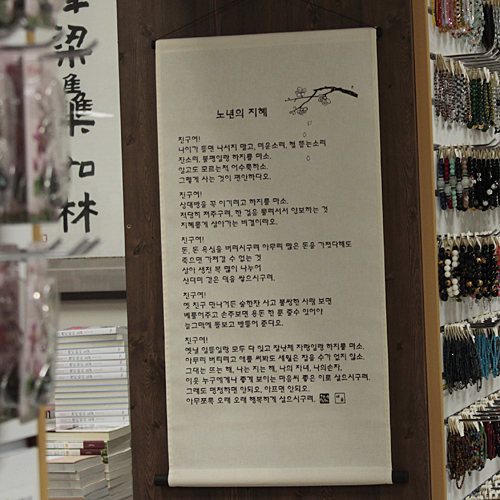 노년의 지혜
친구여!
나이가 들면 나서지 말고, 미운소리, 헐 뜯는소리
잔소리, 불평일랑 하지를 마소.
알고도 모르는척 어수룩하소.
그렇게 사는 것이 편안하다오.
친구여!
상대방을 꼭 이기려고 하지를 마소.
적당히 져주구려, 한 걸음 물러서서 양보하는 것
지혜롭게 살아가는 비결이라오.
친구여!
돈, 돈 욕심을 버리시구려 아무리 많은 돈을 가졌다해도
죽으면 가져갈 수 없는 것
살아 생전 복 많이 나누어
산더미 같은 덕을 쌓으시구려.
친구여!
옛 친구 만나거든 술한잔 사고 불쌍한 사람 보면
베풀어주고 손주보면 용돈 한 푼 줄수 있어야
늘그막에 돌보고 받들어 준다오.
친구여!
옛날 일들일랑 모두 다 잊고 잘난체 자랑일랑 하지를 마소.
아무리 버티려고 애를 써봐도 세월은 잡을 수가 없지 않소.
그대는 뜨는 해, 나는 지는 해, 나의 자녀, 나의손자,
이웃 누구에게나 좋게 보이는 마음씨 좋은 이로 살으시구려.
그래도 멍청하면 안되오. 아프면 안되오.
아무쪼록 오래 오래 행복하게 살으시구려.
梁
集
如
林